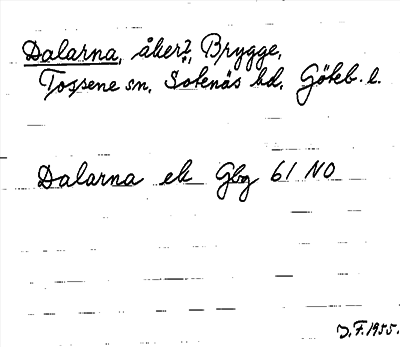 Dalarna, åker?, Brygge,
Tossene sn, Sotenäs hd, Göteb. l.
Dalarna ek Gbg 61 NO
J.F. 1955.